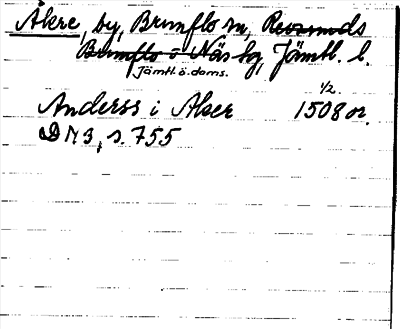 Åkre, by, Brunflo sn, Revsunds
Brunflo o Näs hg, Jämtl. l.
Jämtl. ö. doms.
1/2.
Anderss i Aker 1508 or.
DN 3, s. 755